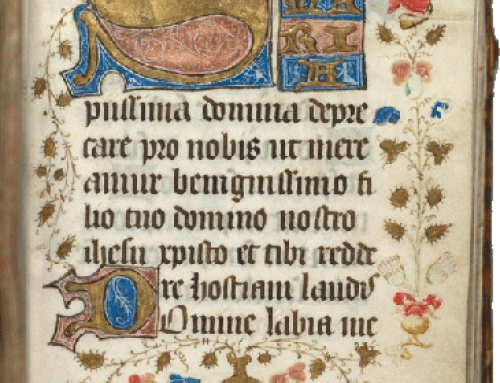 MA
RI
A
piissima domina depre
care pro nobis ut mere
amur benignissimo fi
lio tuo domino nostro
ihesu xpisto et tibi redde
re hostiam laudis
DOmine labia me